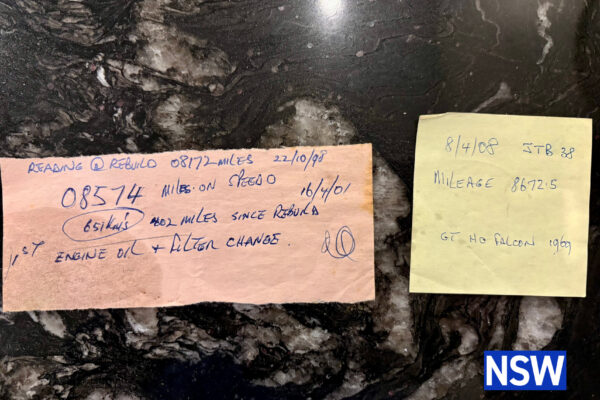 READING @ REBUILD 08172 MILES 22/10/98
08574 MILES ON SPEEDO 16/4/01
651Km's 402 MILES SINCE REBUILD
1ST ENGINE OIL + FILTER CHANGE.
8/4/08 JTB 38
MILEAGE 8672.5
GT HO FALCON 1969
NSW